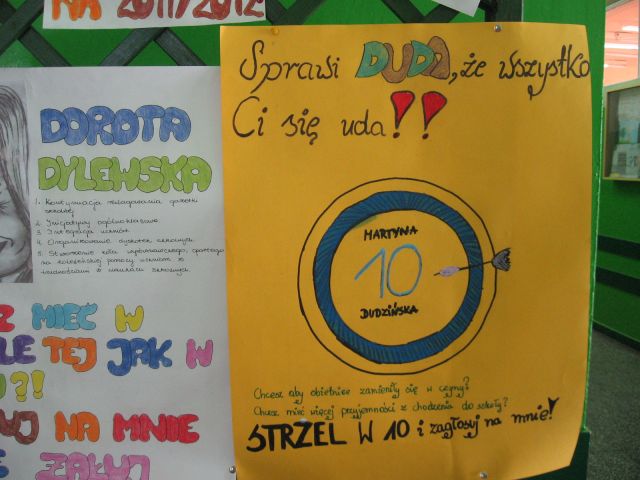 NA 2011/2012
DOROTA
DYLEWSKA
1. Kontynuacja redagowania gazetki
szkolnej
2. Inicjatywy ogólnoklasowe
3. Integracja uczniów
4. Organizowanie dyskotek szkolnych
5. Stworzenie koła wyrównawczego, opartego
na koleżeńskiej pomocy uczniom z
trudnościami w naukach szkolnych
Z MIEĆ W
LE TEJ JAK W
?!
UJ NA MNIE
ŻAŁUJ
Sprawi DUDA, że wszystko
Ci się uda!!
MARTYNA
10
DUDZIŃSKA
Chcesz aby obietnice zamieniły się w czyny?
Chcesz mieć więcej przyjemności z chodzenia do szkoły?
STRZEL W 10 i zagłosuj na mnie!